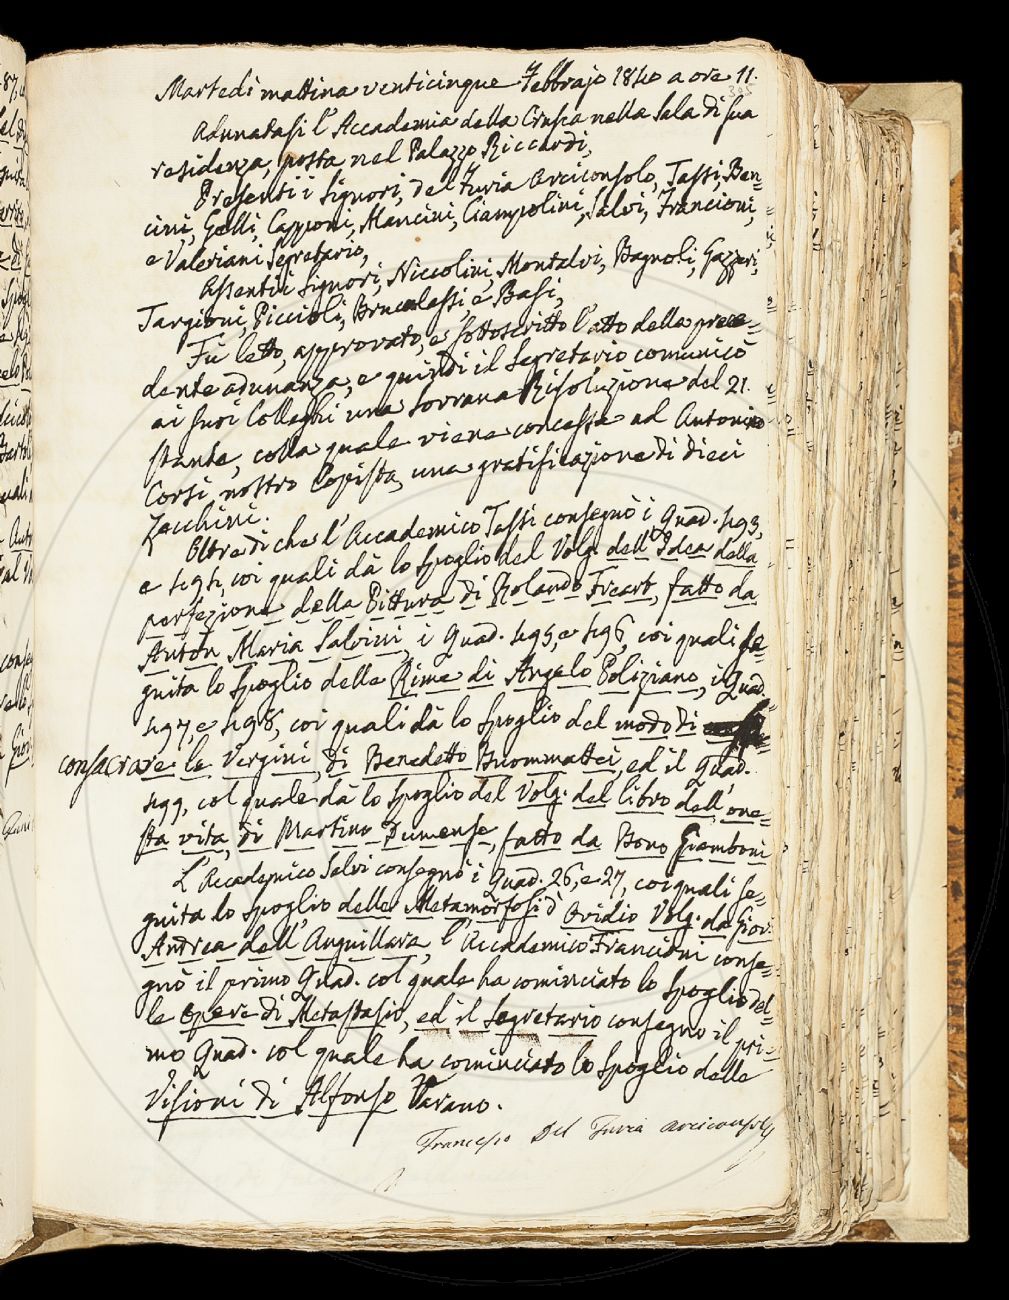 Martedì mattina venticinque Febbrajo 1840 a ore 11.
395
Adunatasi l'Accademia della Crusca nella Sala di sua
residenza, posta nel Palazzo Riccardi,
Presenti i Signori, Del Furia Arciconsolo, Tassi, Ben=
cini, Gelli, Capponi, Mancini, Ciampolini, Salvi, Francioni,
e Valeriani Segretario,
Assenti i Signori, Niccolini, Montalvi, Bagnoli, Gazzeri,
Targioni, Piccioli, Brucalassi, e Basi,
Fù letto, approvato, e sottoscritto l'atto della prece=
dente adunanza, e quindi il Segretario comunicò
ai suoi Colleghi una Sovrana Risoluzione del 21.
stante, colla quale viene concessa ad Antonio
Corsi, nostro Copista, una gratificazione di dieci
Zecchini.
Oltre di che l'Accademico Tassi consegnò i Quad. 493,
e 494, coi quali dà lo spoglio del Volg. dell'Idea della
perfezione della Pittura di Rolando Freart, fatto da
Anton Maria Salvini, i Quad. 495, e 496, coi quali se=
guita lo spoglio delle Rime di Angelo Poliziano, i Quad.
497, e 498, coi quali dà lo spoglio del modo di
consacrare le Vergini, di Benedetto Buommattei, ed il Quad.
499, col quale dà lo spoglio del Volg. del libro dell'one=
sta vita, di Martino Dumense, fatto da Bono Giamboni
L'Accademico Salvi consegnò i Quad. 26, e 27, coi quali se=
guita lo spoglio delle Metamorfosi d'Ovidio Volg. da Giov.
Andrea dell'Anguillara, l'Accademico Francioni conse=
gnò il primo Quad. col quale ha cominciato lo spoglio del=
le Opere di Metastasio, ed il Segretario consegnò il pri=
mo Quad. col quale ha cominciato lo spoglio delle
Visioni di Alfonso Varano.
Francesco Del Furia Arciconsolo